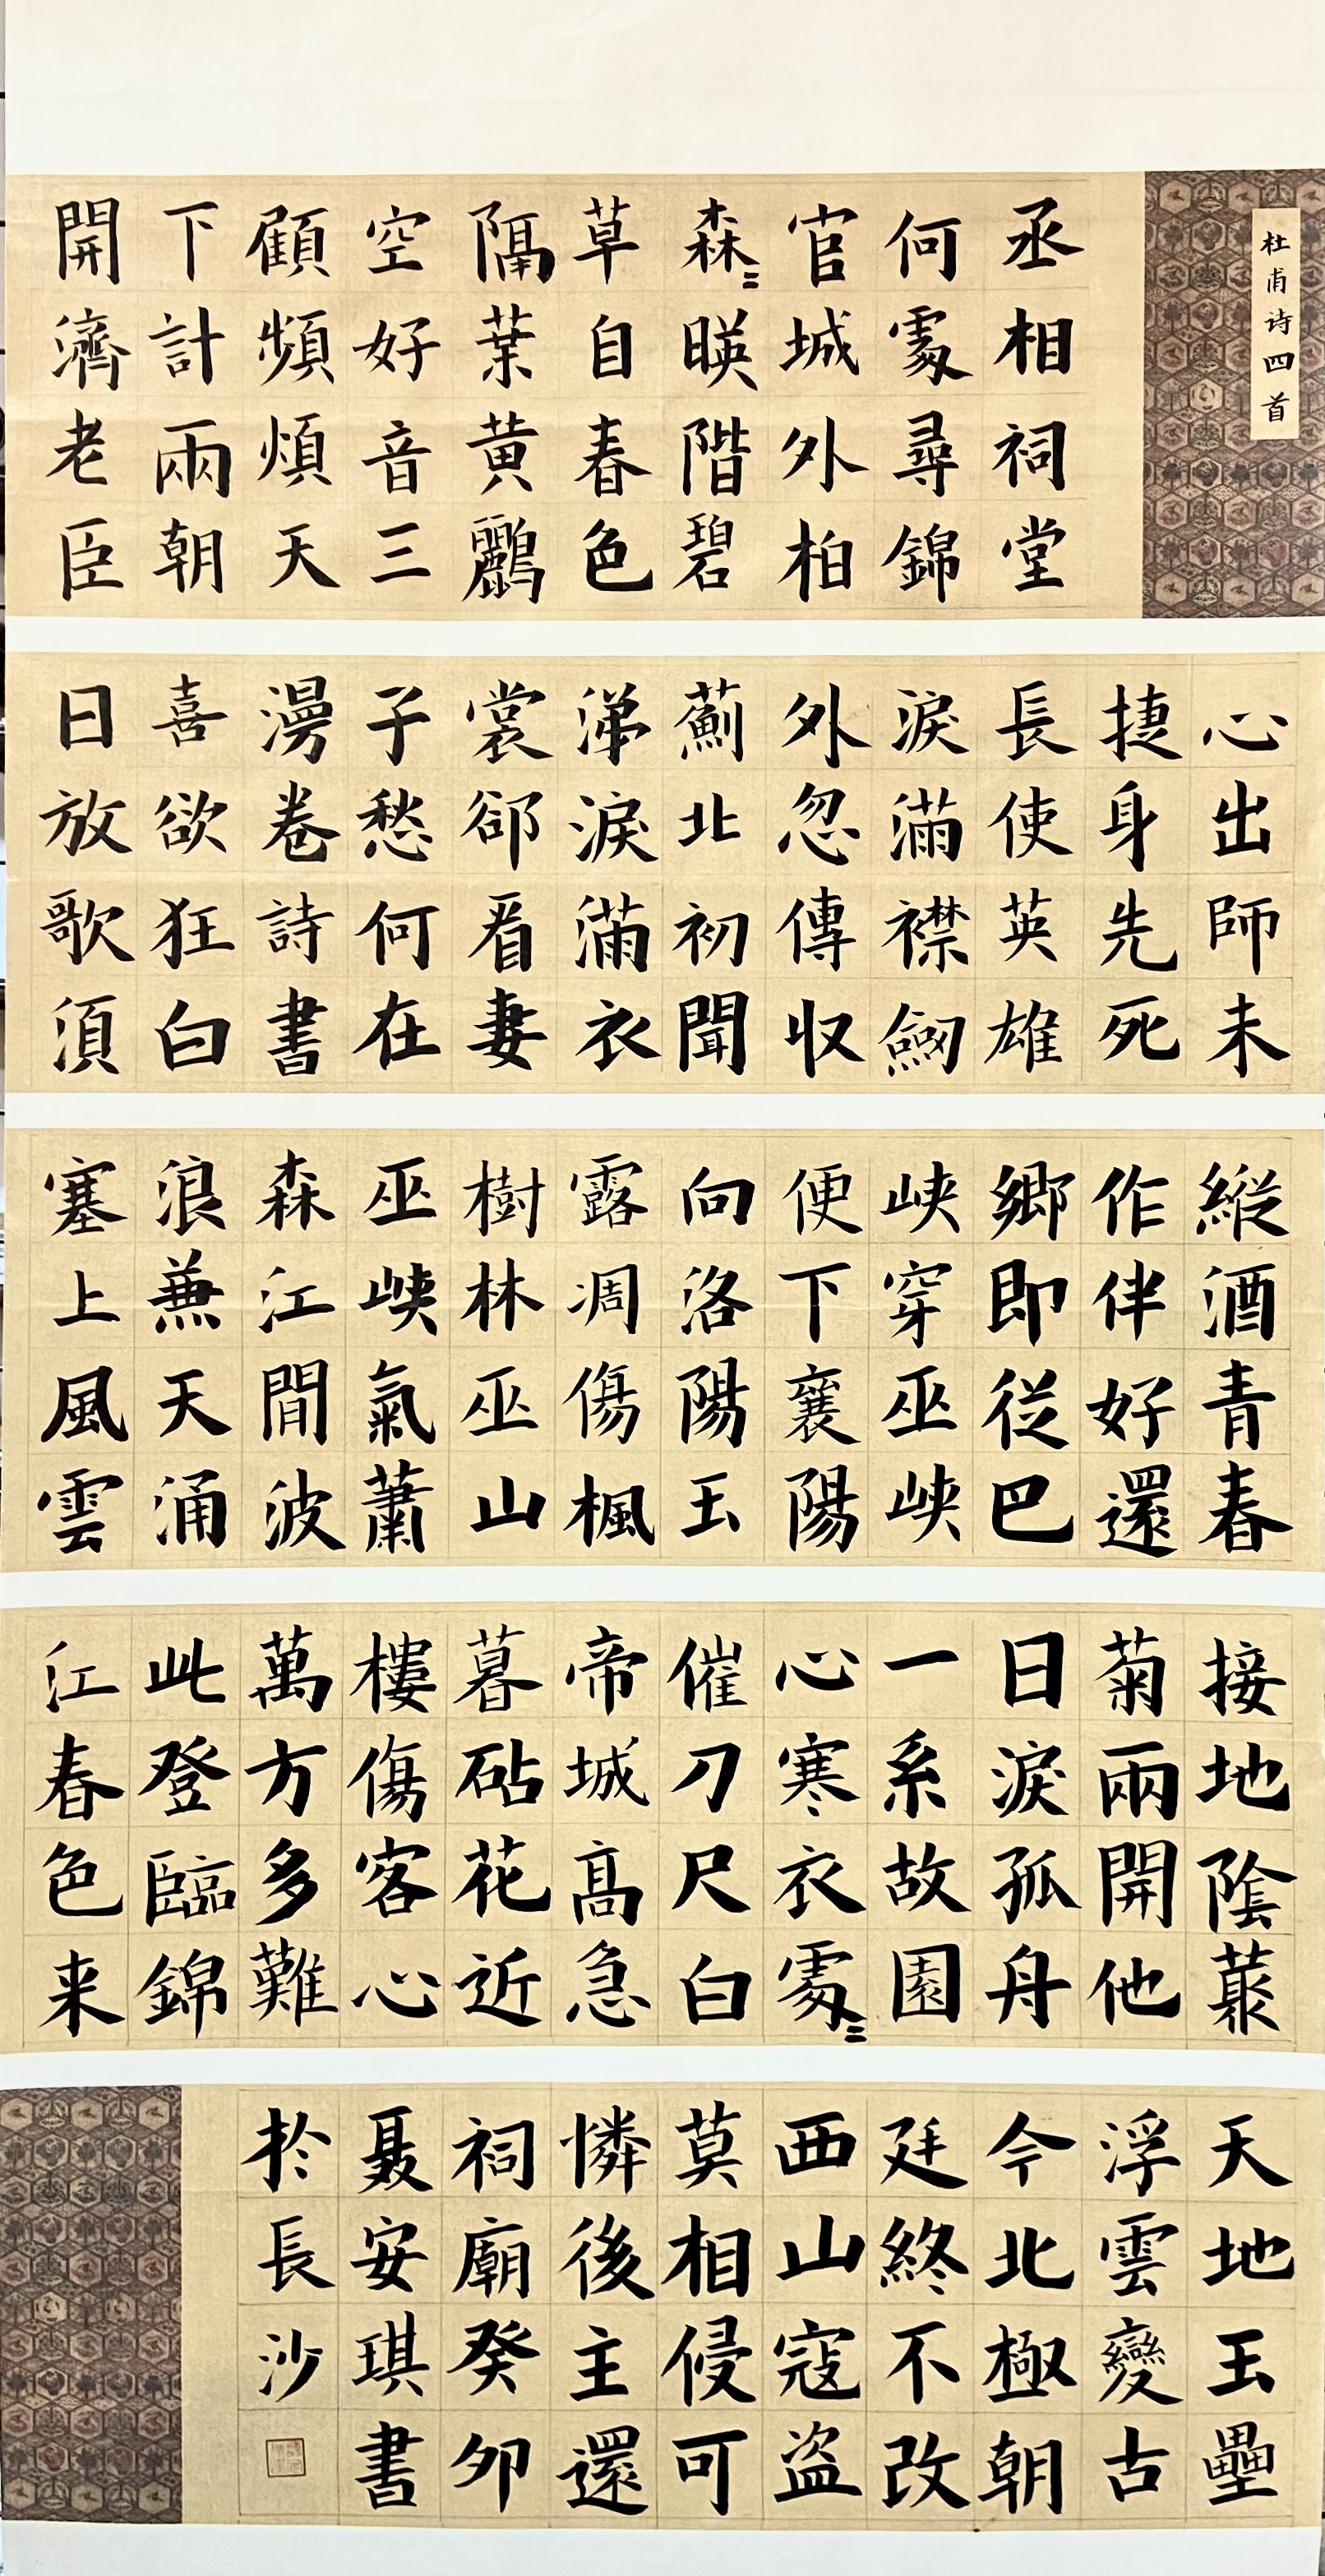 杜甫诗四首
丞相祠堂
何處尋錦
官城外柏
森〻暎階碧
草自春色
隔葉黄鸝
空好音三
顧頻煩天
下計兩朝
開濟老臣
心出師未
捷身先死
長使英雄
淚滿襟劒
外忽傳収
薊北初聞
涕淚滿衣
裳郤看妻
子愁何在
漫卷詩書
喜欲狂白
日放歌須
縱酒青春
作伴好還
鄉即従巴
峽穿巫峽
便下襄陽
向洛陽玉
露凋傷楓
樹林巫山
巫峽氣蕭
森江間波
浪兼天涌
塞上風雲
接地陰叢
菊兩開他
日淚孤舟
一系故園
心寒衣處〻
催刀尺白
帝城髙急
暮砧花近
樓傷客心
萬方多難
此登臨錦
江春色来
天地玉壘
浮雲變古
今北極朝
廷終不改
西山寇盗
莫相侵可
憐後主還
祠廟癸卯
聂安琪書
於長沙